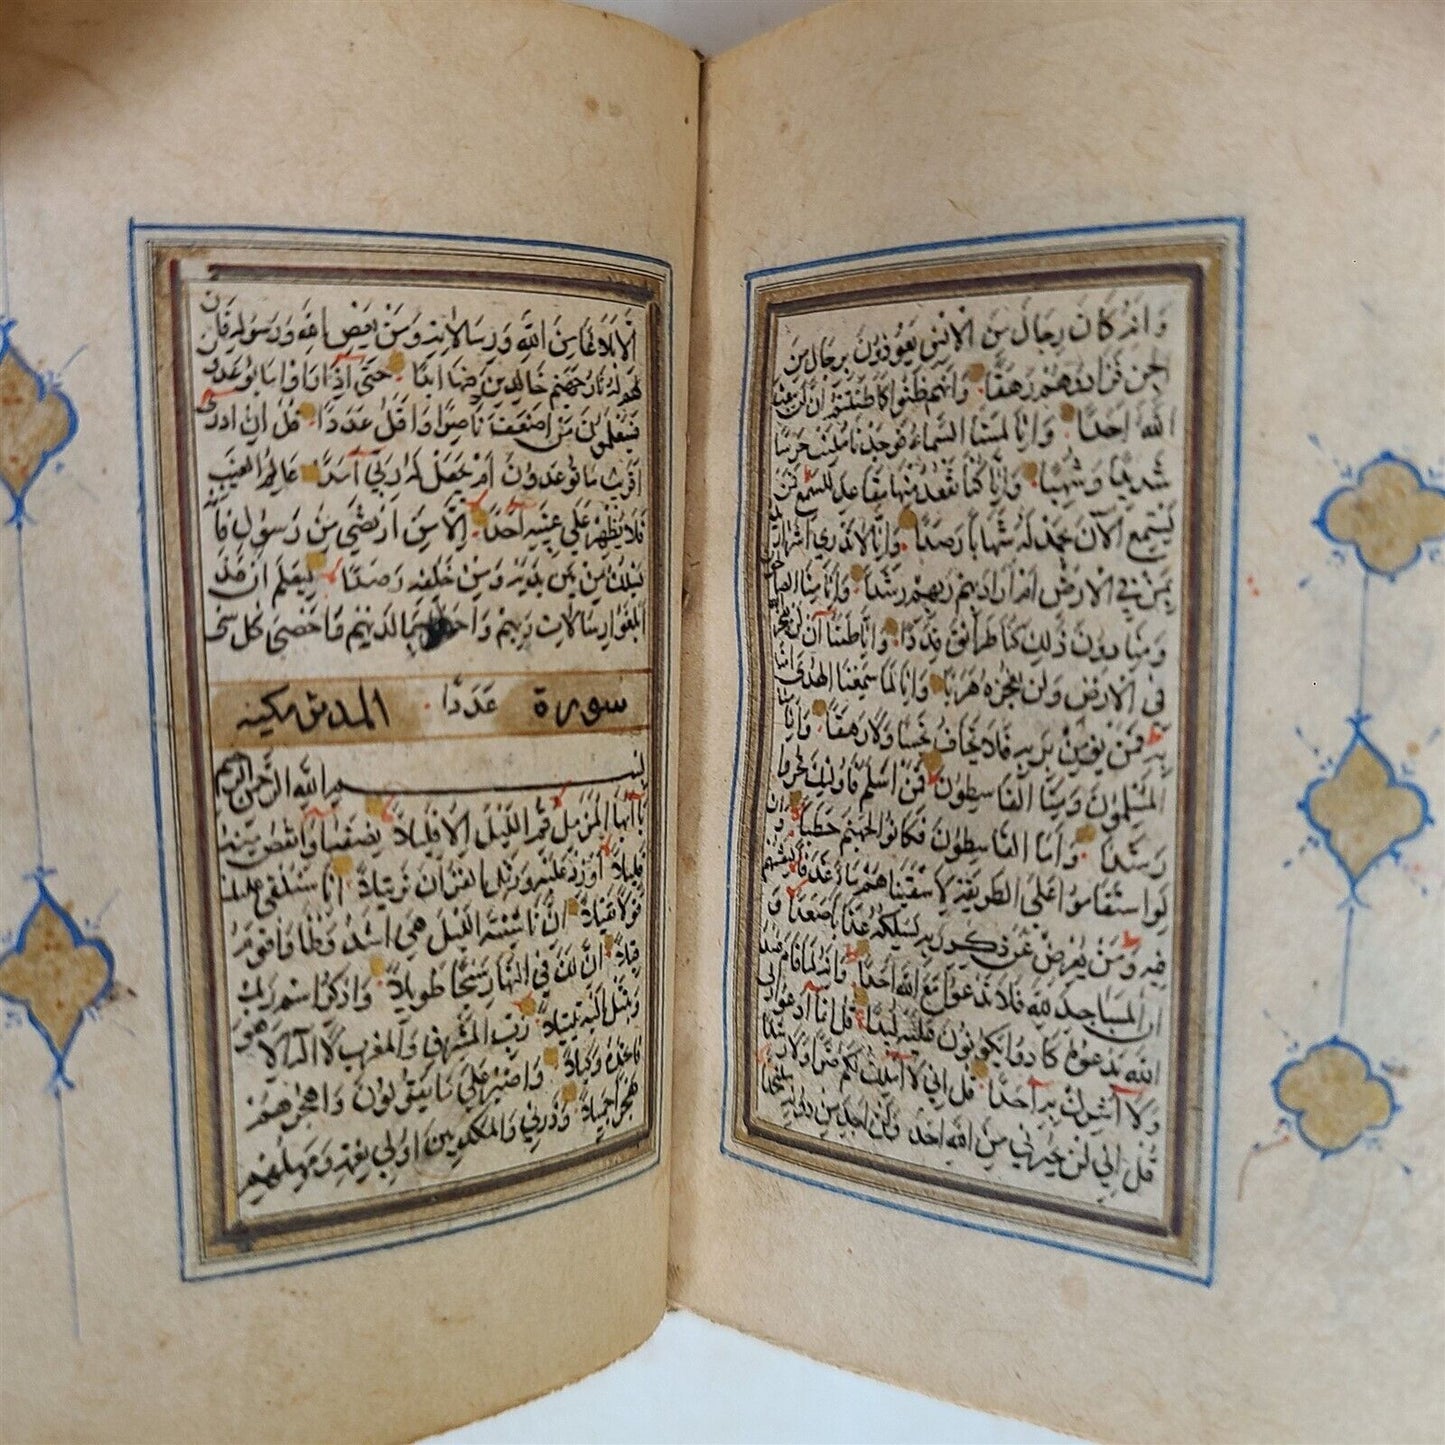 وانه كان رجال من الانس يعوذون برجال من
الجن فزادوهم رهقا وانهم ظنوا كما ظننتم ان لن يبعث
الله احدا وانا لمسنا السماء فوجدناها ملئت حرسا
شديدا وشهبا وانا كنا نقعد منها مقاعد للسمع فمن
يستمع الآن يجد له شهابا رصدا وانا لا ندري اشر اريد
بمن في الارض ام اراد بهم ربهم رشدا وانا منا الصالحون
ومنا دون ذلك كنا طرائق قددا وانا ظننا ان لن نعجز
في الارض ولن نعجزه هربا وانا لما سمعنا الهدى امنا
به فمن يؤمن بربه فلا يخاف بخسا ولا رهقا وانا منا
المسلمون ومنا القاسطون فمن اسلم فاولئك تحروا
رشدا واما القاسطون فكانوا لجهنم حطبا وان
لو استقاموا على الطريقة لاسقيناهم ماء غدقا لنفتنهم
فيه ومن يعرض عن ذكر ربه يسلكه عذابا صعدا و
ان المساجد لله فلا تدعوا مع الله احدا وانه لما قام عبد
الله يدعوه كادوا يكونون عليه لبدا قل انما ادعوا ربي
ولا اشرك به احدا قل اني لا املك لكم ضرا ولا رشدا
قل اني لن يجيرني من الله احد ولن اجد من دونه ملتحدا
الا بلاغا من الله ورسالاته ومن يعص الله ورسوله فان
له نار جهنم خالدين فيها ابدا حتى اذا راوا ما يوعدون
فسيعلمون من اضعف ناصرا واقل عددا قل ان ادري
اقريب ما توعدون ام يجعل له ربي امدا عالم الغيب
فلا يظهر على غيبه احدا الا من ارتضى من رسول فانه
يسلك من بين يديه ومن خلفه رصدا ليعلم ان قد
ابلغوا رسالات ربهم واحاط بما لديهم واحصى كل شئ
سورة عددا المدثر مكية
بسم الله الرحمن الرحيم
يا ايها المزمل قم الليل الا قليلا نصفه او انقص منه
قليلا او زد عليه ورتل القرآن ترتيلا انا سنلقي عليك
قولا ثقيلا ان ناشئة الليل هي اشد وطأ واقوم
قيلا ان لك في النهار سبحا طويلا واذكر اسم ربك
وتبتل اليه تبتيلا رب المشرق والمغرب لا اله الا هو
فاتخذه وكيلا واصبر على ما يقولون واهجرهم
هجرا جميلا وذرني والمكذبين اولي النعمة ومهلهم